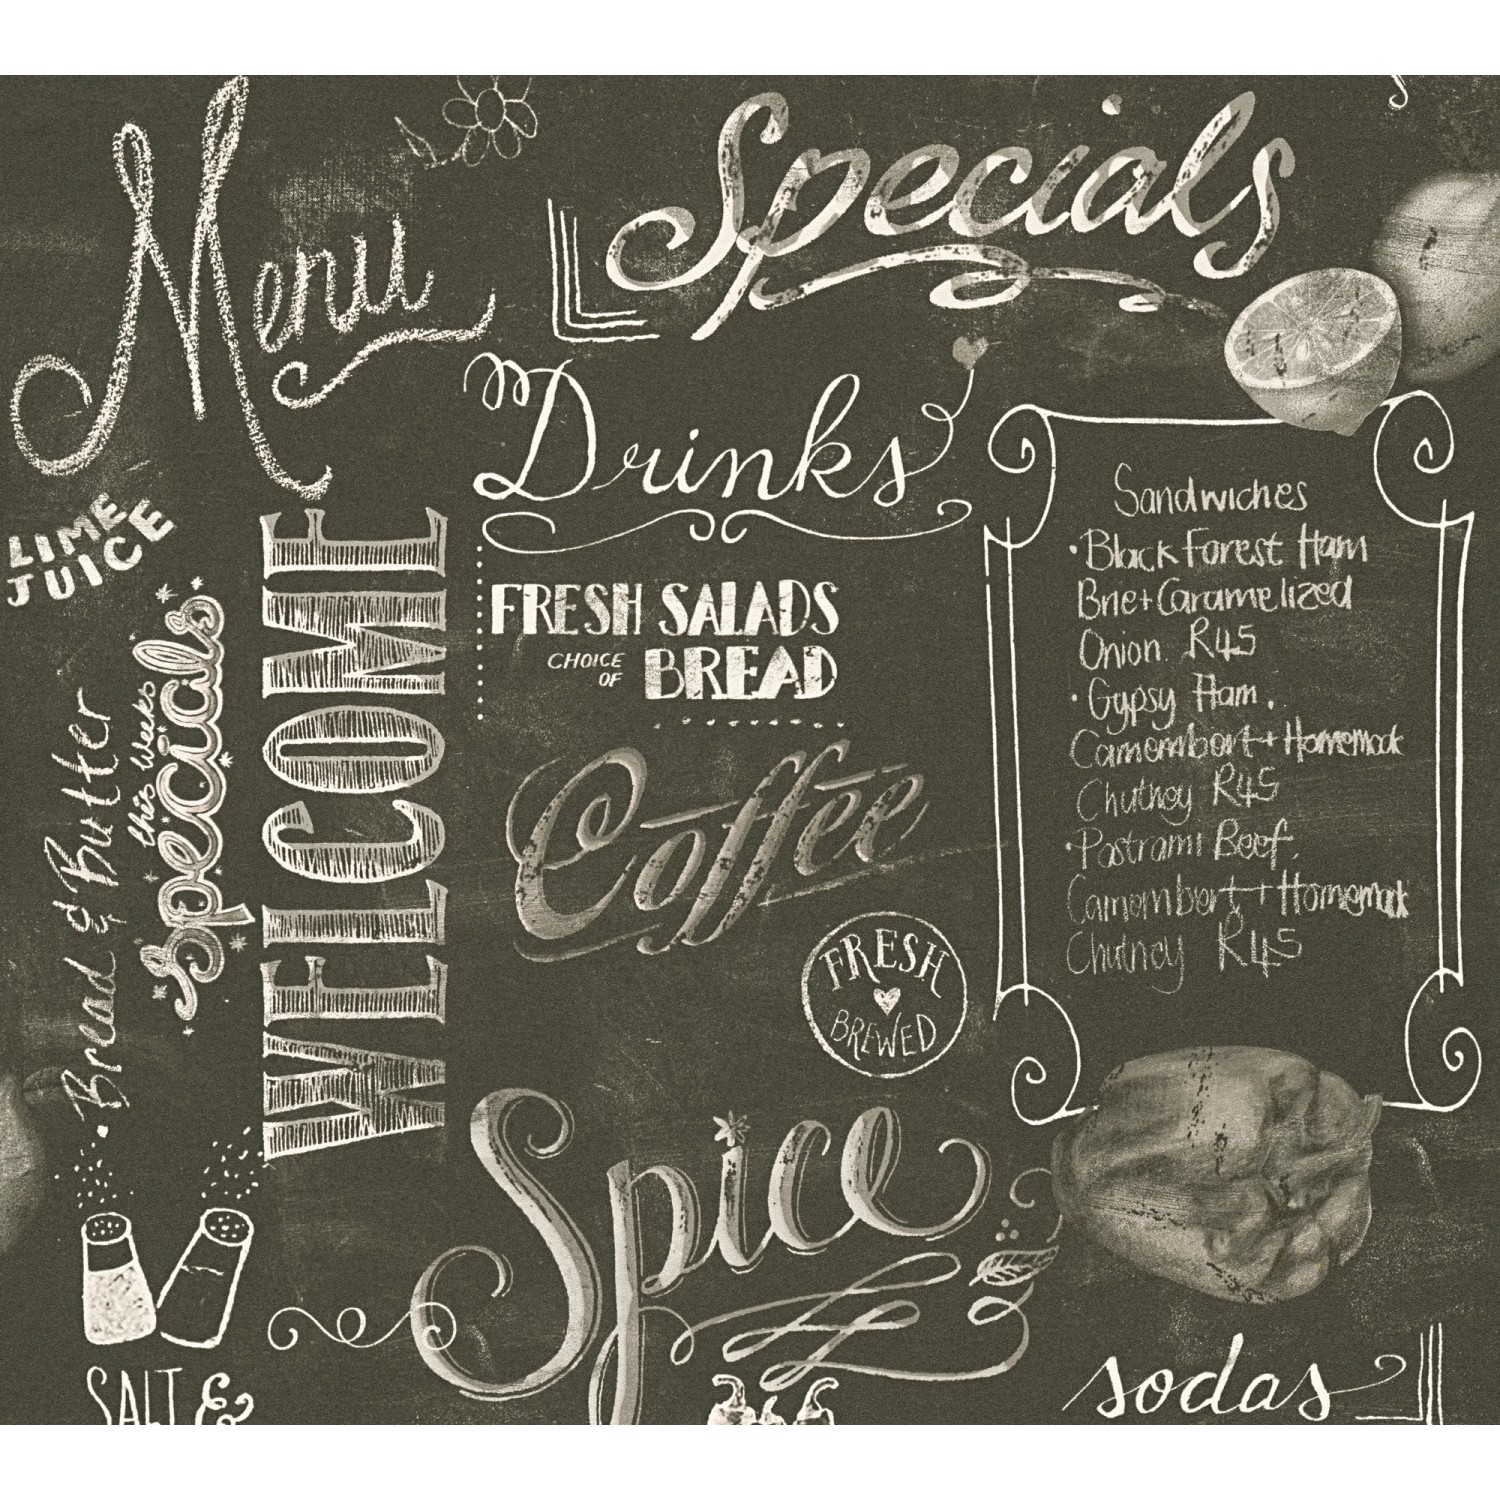 Menu
Specials
Drinks
LIME
JUICE
FRESH SALADS
CHOICE
OF
BREAD
Coffee
FRESH
BREWED
WELCOME
this weeks
Specials
Bread & Butter
Sandwiches
• Black Forest Ham
Brie + Caramelized
Onion R45
• Gypsy Ham.
Camembort + Homemade
Chutney R45
• Pastrami Beef.
Camembort + Homemade
Chutney R45
Spice
SALT &
sodas